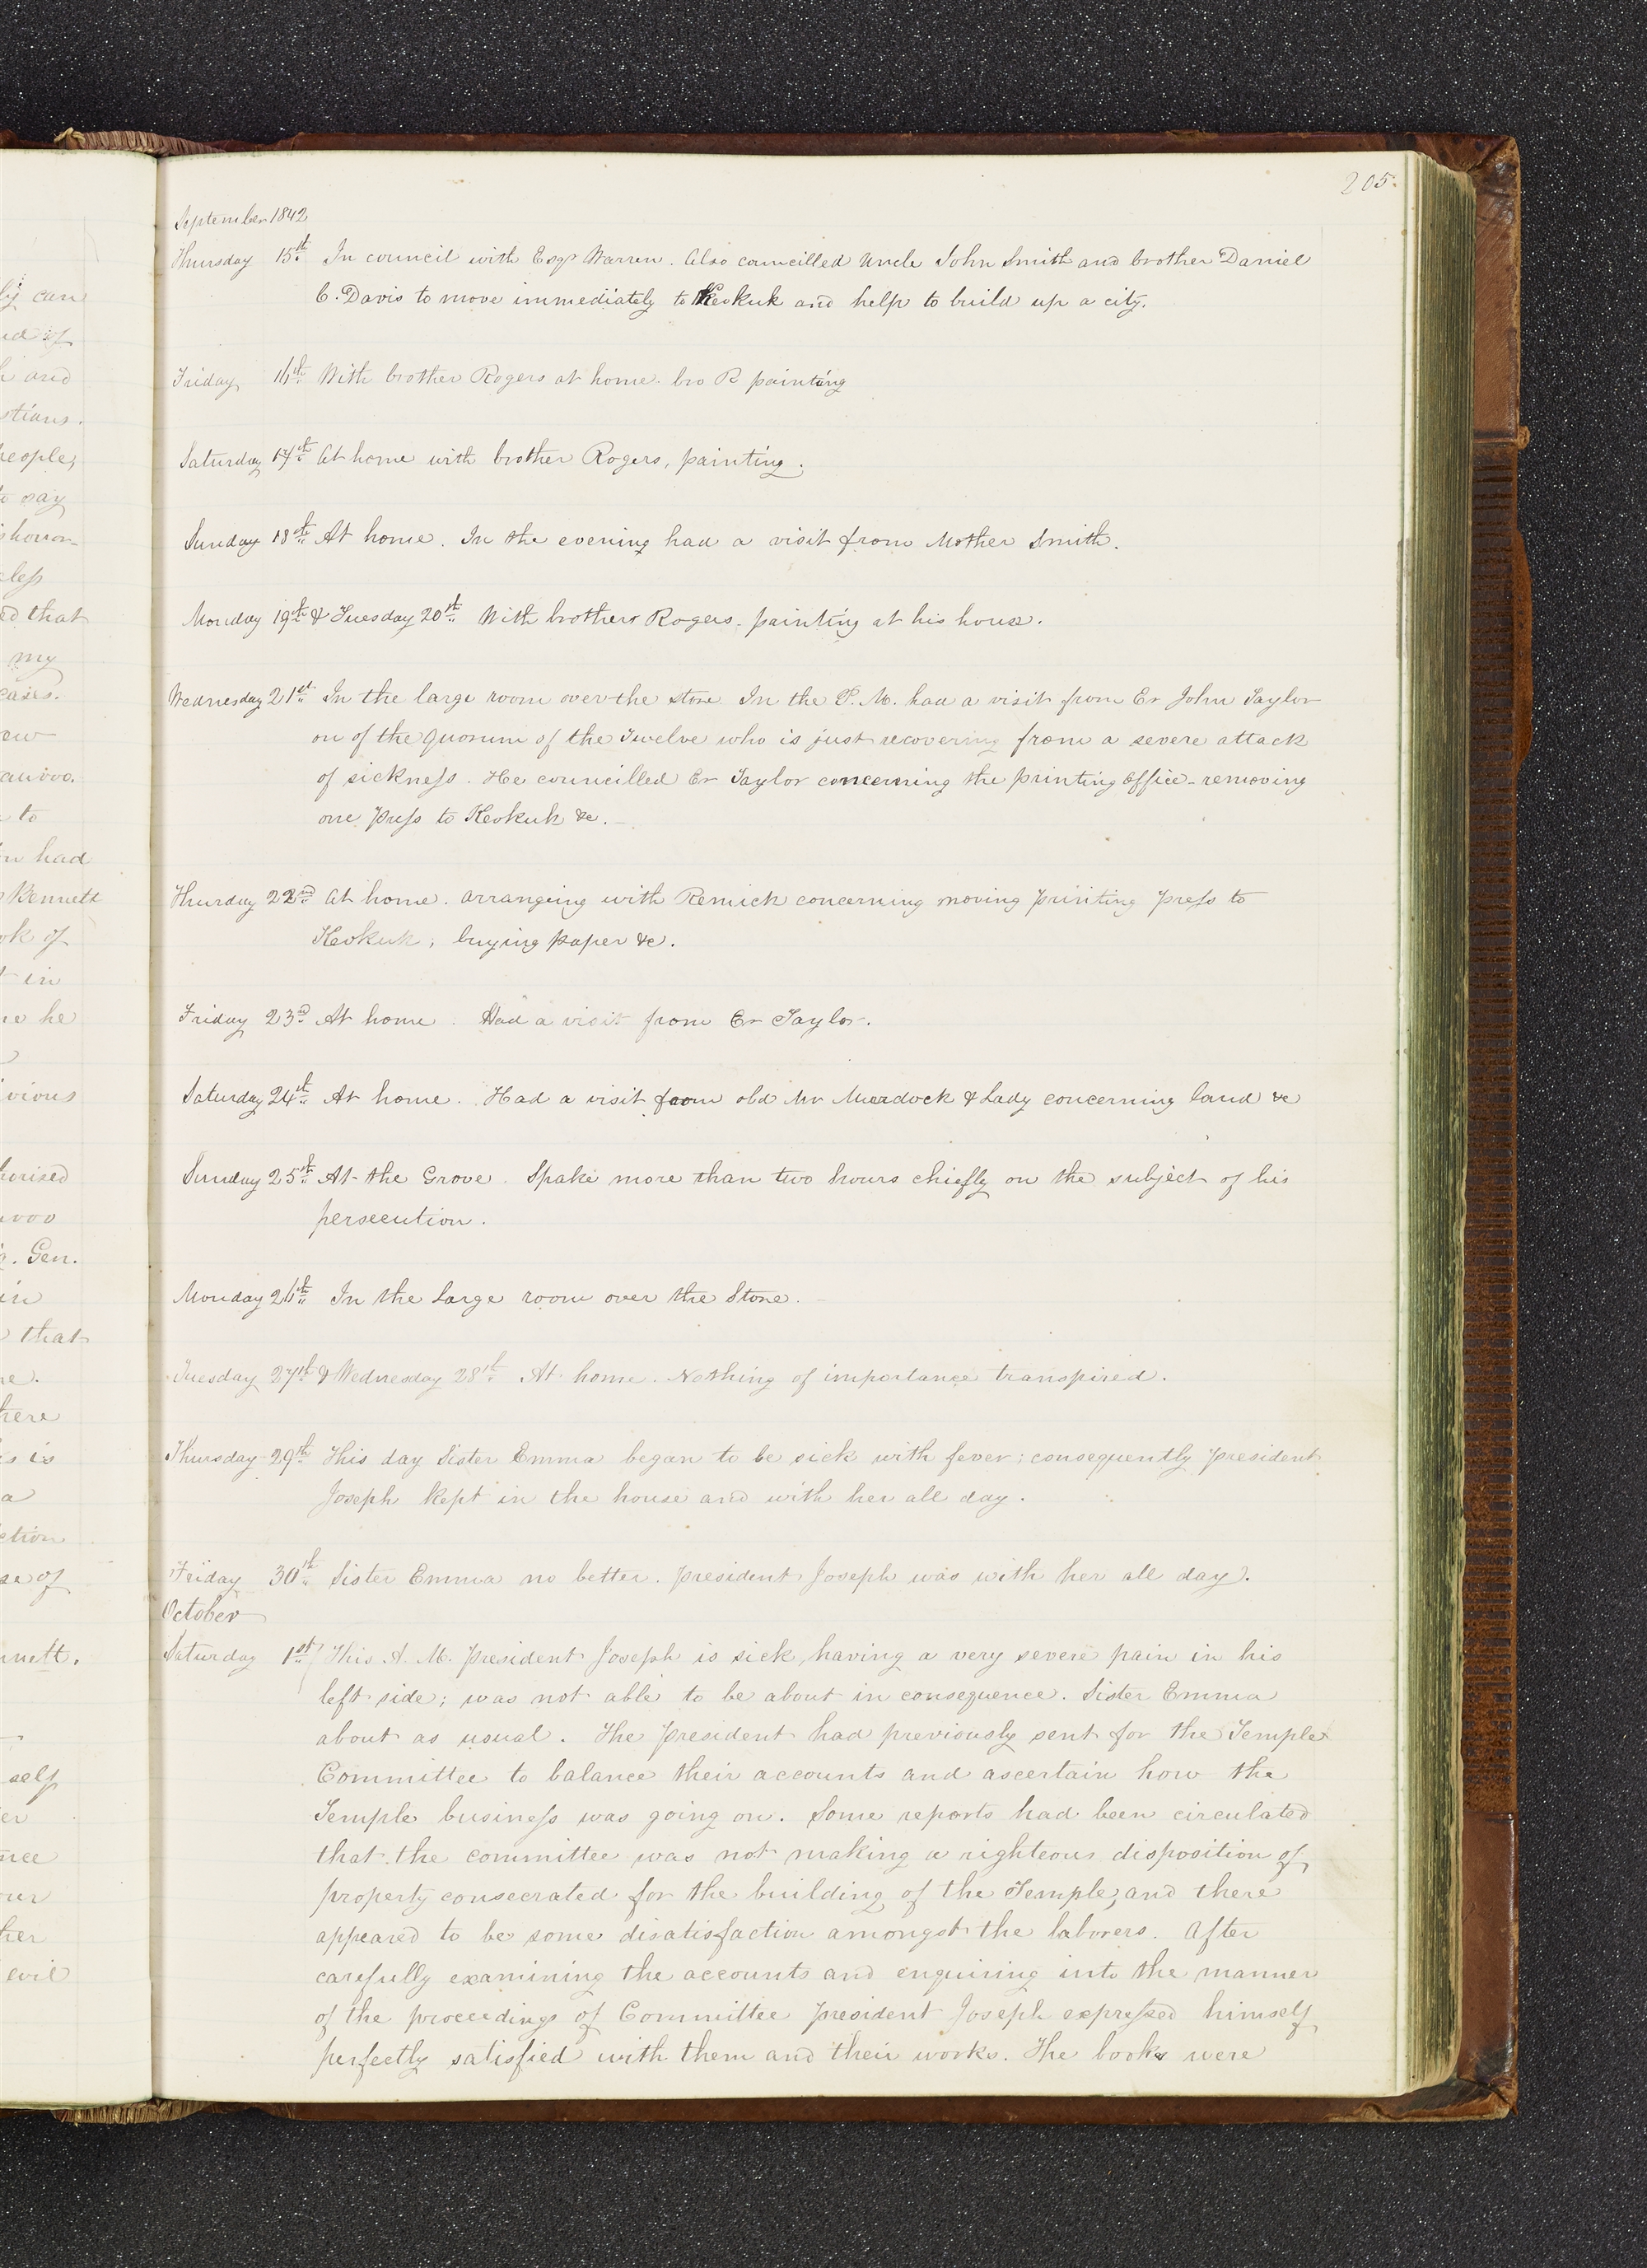 205.
September 1842
Thursday 15th. In council with Esqr Warren. Also councilled Uncle John Smith and brother Daniel
C. Davis to move immediately to Keokuk and help to build up a city.
Friday 16th With brother Rogers at home. bro R painting
Saturday 17th At home with brother Rogers, painting.
Sunday 18th At home. In the evening had a visit from Mother Smith.
Monday 19th & Tuesday 20th With brother Rogers. painting at his house.
Wednesday 21st In the large room over the store In the P.M. had a visit from Er John Taylor
on of the Quorum of the Twelve who is just recovering from a severe attack
of sickness. He councilled Er Taylor concerning the printing Office - removing
one press to Keokuk &c.
Thursday 22nd At home. arrangeing with Remick concerning moving printing press to
Keokuk, buying paper &c.
Friday 23rd At home. Had a visit from Er Taylor.
Saturday 24th At home. Had a visit from old Mr Murdock & Lady concerning land &c
Sunday 25th At the Grove. Spake more than two hours chiefly on the subject of his
persecution.
Monday 26th In the large room over the Store.
Tuesday 27th & Wednesday 28th At home. Nothing of importance transpired.
Thursday 29th This day Sister Emma began to be sick with fever; consequently president
Joseph kept in the house and with her all day.
Friday 30th Sister Emma no better. president Joseph was with her all day.
October
Saturday 1st This A. M. president Joseph is sick, having a very severe pain in his
left side; was not able to be about in consequence. Sister Emma
about as usual. The president had previously sent for the Temple
Committee to balance their accounts and ascertain how the
Temple business was going on. Some reports had been circulated
that the committee was not making a righteous disposition of
property consecrated for the building of the Temple, and there
appeared to be some disatisfaction amongst the laborers. After
carefully examining the accounts and enquiring into the manner
of the proceedings of Committee president Joseph expressed himself
perfectly satisfied with them and their works. The books were